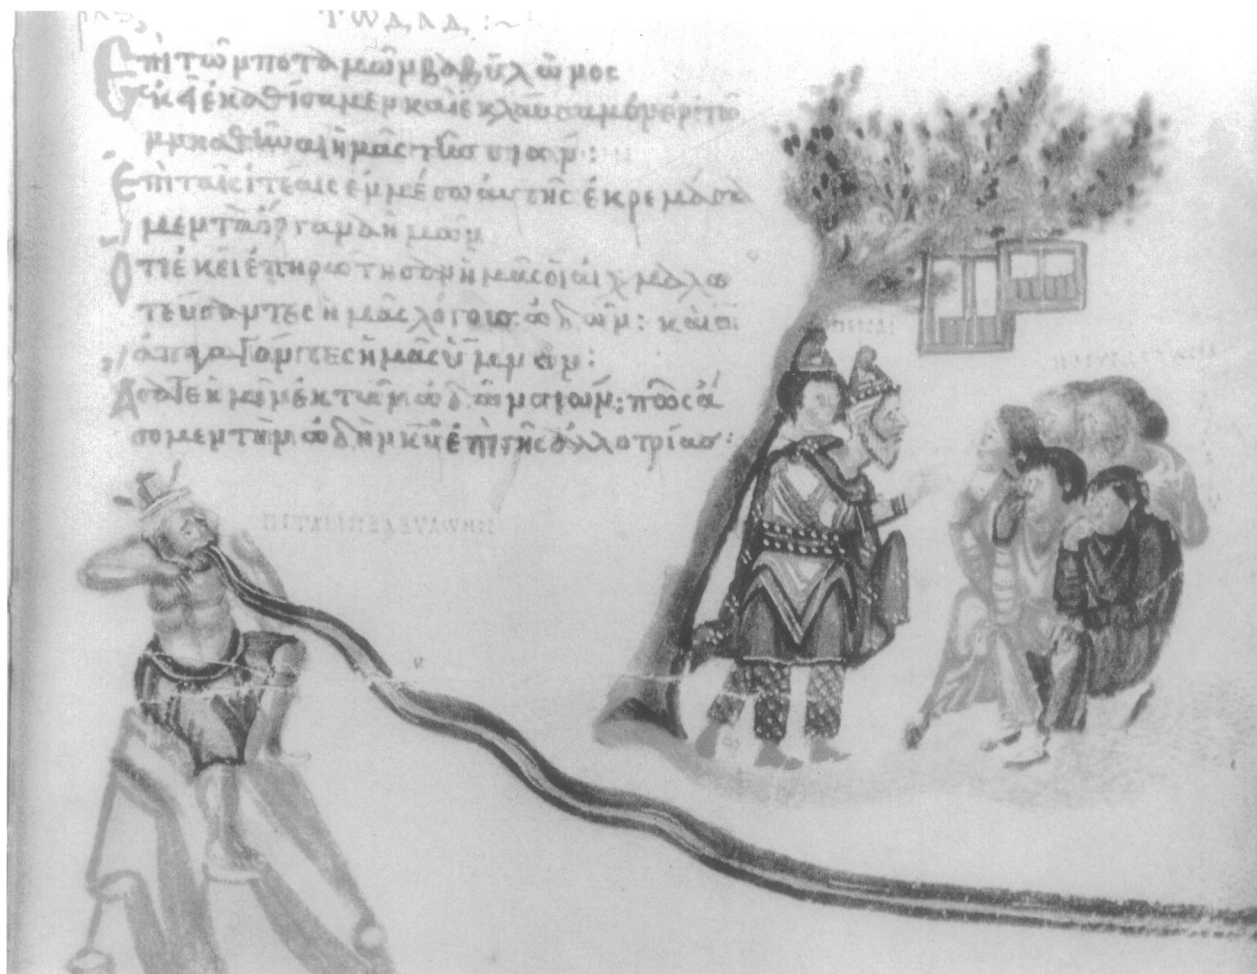 τω δαδ :~
Επὶ τῶν ποταμῶν βαβυλῶνος
ἐκεῖ ἐκαθίσαμεν καὶ ἐκλαύσαμεν ἐν τῶ
μνησθῆναι ἡμᾶς τῆς σιών :
Ἐπὶ ταῖς ἰτέαις ἐν μέσω αὐτῆς ἐκρεμάσα
μεν τὰ ὄργανα ἡμῶν
Ὅτι ἐκεῖ ἐπηρώτησαν ἡμᾶς οἱ αἰχμαλω
τεύσαντες ἡμᾶς λόγους ὠδῶν : καὶ οἱ
ἀπαγαγόντες ἡμᾶς ὕμνον :
Ἄσατε ἡμῖν ἐκ τῶν ὠδῶν σιών : πῶς ἄ
σομεν τὴν ὠδὴν κυ ἐπὶ γῆς ἀλλοτρίας :